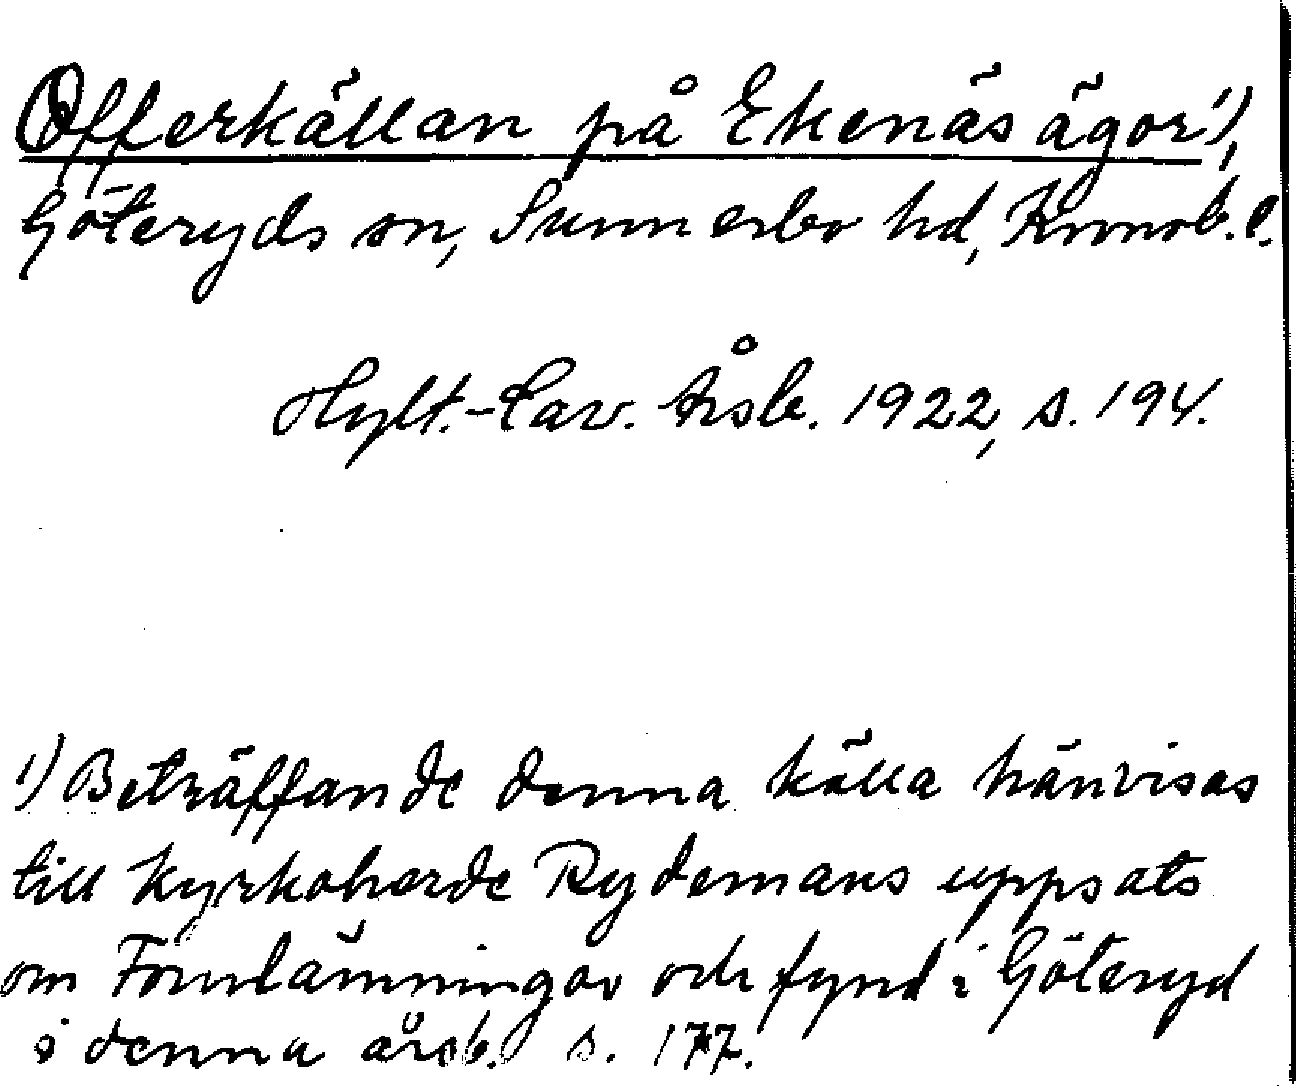 Offerkällan på Ekenäs ägor¹),
Göteryds sn, Sunnerbo hd, Kronob. l.
Hylt.-Cav. Årsb. 1922, s. 194.
¹) Beträffande denna källa hänvisas
till kyrkoherde Rydemans uppsats
om Fornlämningar och fynd i Göteryd
i denna årsb. s. 177.